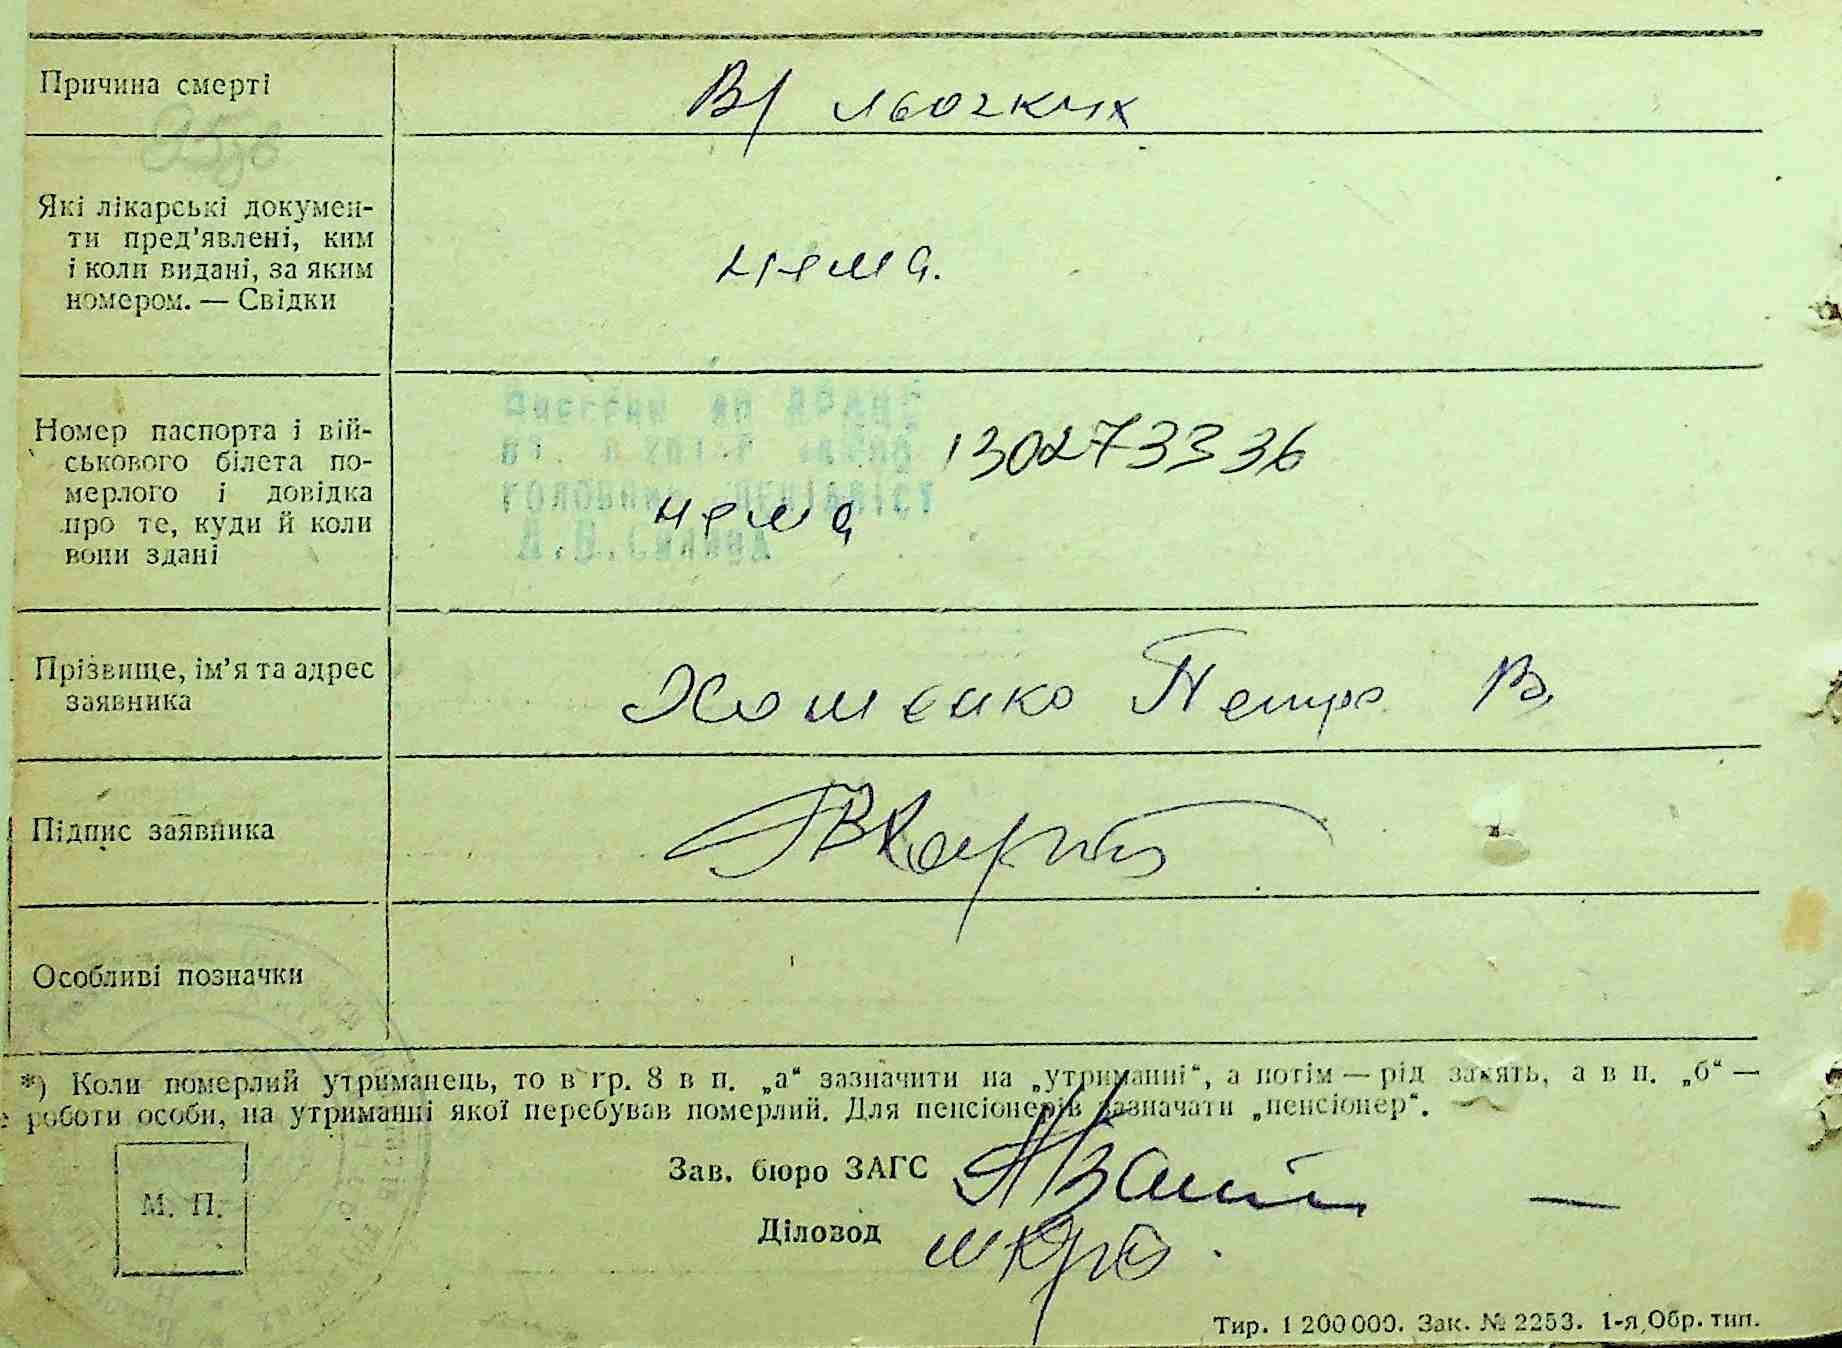 Причина смерті
В/ льогких
Які лікарські докумен-
ти пред'явлені, ким
і коли видані, за яким
номером. — Свідки
нема.
Номер паспорта і вій-
ськового білета по-
мерлого і довідка
про те, куди й коли
вони здані
130273336
нема
Прізвище, ім'я та адрес
заявника
Хоменко Петро В.
Підпис заявника
Особливі позначки
*) Коли померлий утриманець, то в гр. 8 в п. „а“ зазначити на „утриманні“, а потім — рід занять, а в п. „б“ —
роботи особи, на утриманні якої перебував померлий. Для пенсіонерів зазначати „пенсіонер“.
М. П.
Зав. бюро ЗАГС
Діловод
Тир. 1 200 000. Зак. № 2253. 1-я Обр. тип.